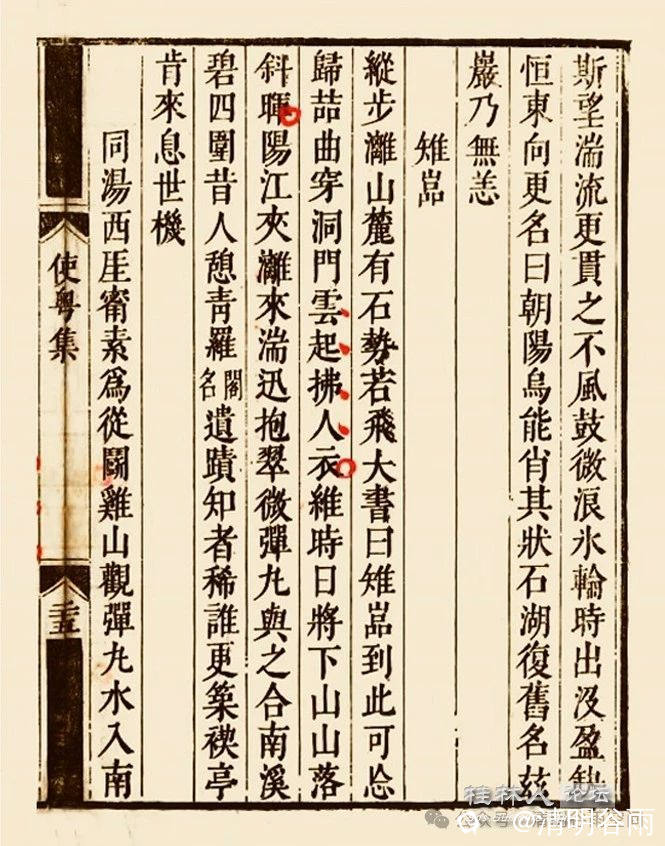 斯望湍流更貫之不風鼓微浪氷輪時出沒盈
恒東向更名曰朝陽烏能肖其狀石湖復舊名兹
巖乃無恙
雉嵓
縱步灕山麓有石勢若飛大書曰雉嵓到此可忘
歸喆曲穿洞門雲起拂人衣維時日將下山山落
斜暉陽江夾灕來湍迅抱翠微彈丸與之合南溪
碧四圍昔人憩青羅閣名遺蹟知者稀誰更築禊亭
肯來息世機
同湯西厓甯素爲從鬬雞山觀彈丸水入南
使粤集
二十五
桂林人论坛
@清明谷雨